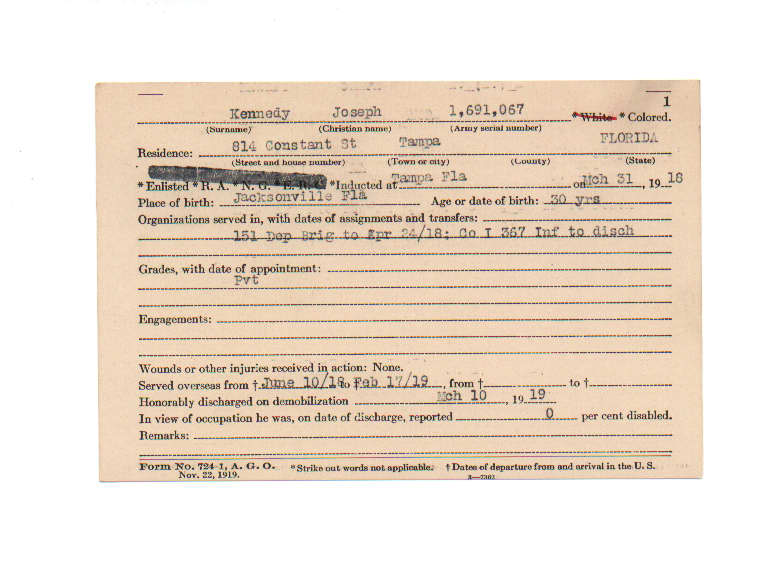 1
Kennedy Joseph 1,691,067 * White * Colored.
(Surname) (Christian name) (Army serial number)
Residence: 814 Constant St Tampa FLORIDA
(Street and house number) (Town or city) (County) (State)
* Enlisted * R. A. * N. G. * E. R. C. * Inducted at Tampa Fla on Mch 31, 1918
Place of birth: Jacksonville Fla Age or date of birth: 30 yrs
Organizations served in, with dates of assignments and transfers:
151 Dep Brig to Apr 24/18; Co I 367 Inf to disch
Grades, with date of appointment:
Pvt
Engagements:
Wounds or other injuries received in action: None.
Served overseas from † June 10/18 to † Feb 17/19, from † to †
Honorably discharged on demobilization Mch 10, 1919
In view of occupation he was, on date of discharge, reported 0 per cent disabled.
Remarks:
Form No. 724-1, A. G. O. * Strike out words not applicable. † Dates of departure from and arrival in the U. S.
Nov. 22, 1919. 3—7302